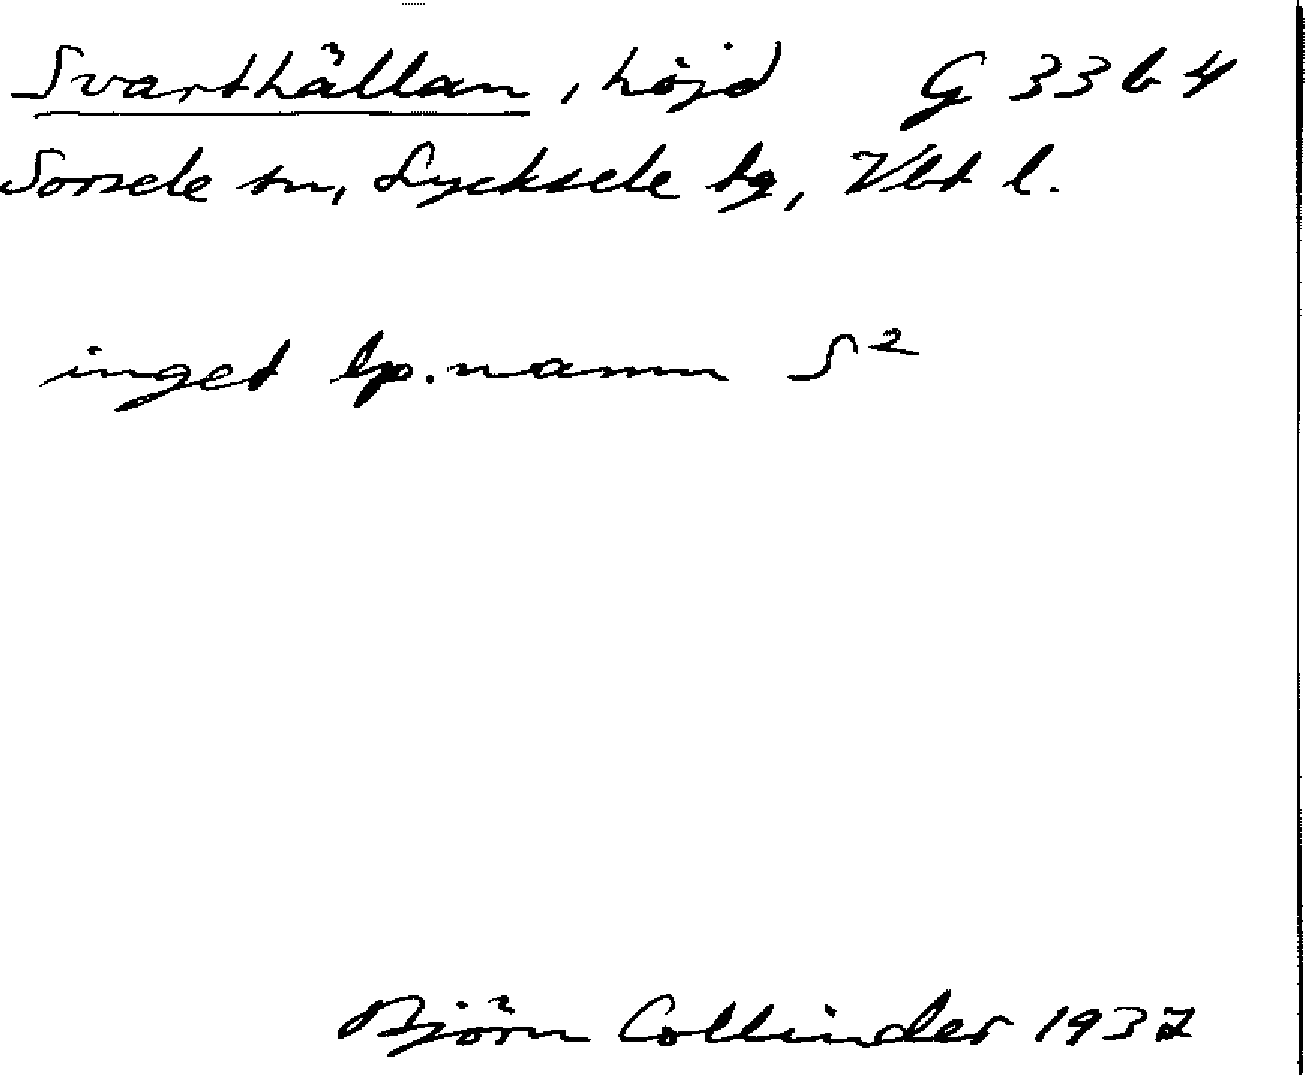 Svarthällan, höjd G 33 b 4
Sorsele sn, Lycksele tg, Vbt l.
inget lp. namn S²
Björn Collinder 1937